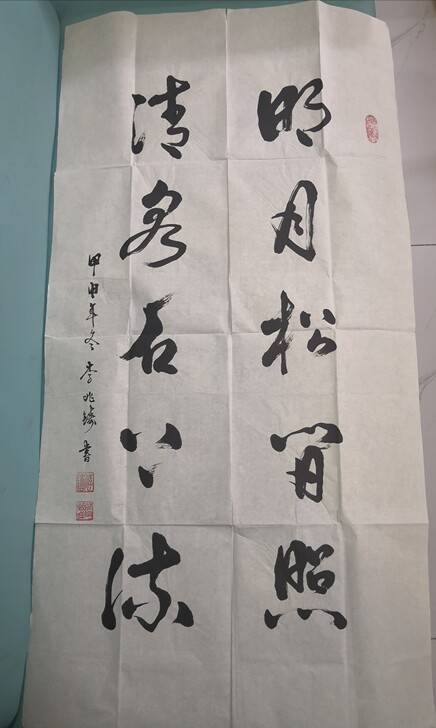 明月松间照
清泉石上流
甲申年冬 李兆 书